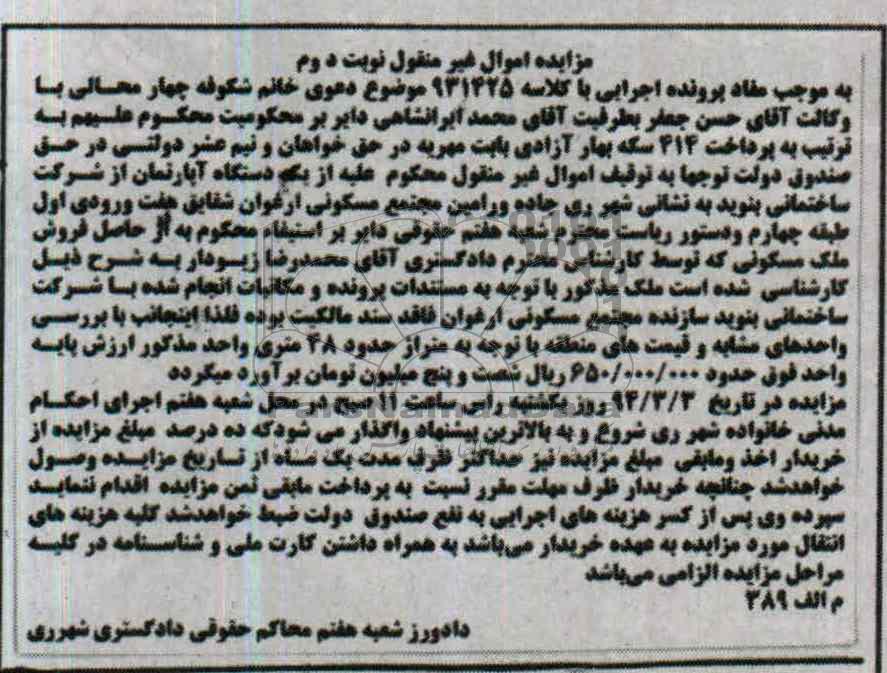 مزایده اموال غیر منقول نوبت دوم
به موجب مفاد پرونده اجرایی با کلاسه ۹۳۱۴۲۵ موضوع دعوی خانم شکوفه چهار محالی با
وکالت آقای حسن جعفر بطرفیت آقای محمد ایرانشاهی دایر بر محکومیت محکوم علیهم به
ترتیب به پرداخت ۴۱۴ سکه بهار آزادی بابت مهریه در حق خواهان و نیم عشر دولتی در حق
صندوق دولت توجها به توقیف اموال غیر منقول محکوم علیه از یک دستگاه آپارتمان از شرکت
ساختمانی بنوید به نشانی شهر ری جاده ورامین مجتمع مسکونی ارغوان شقایق هفت ورودی اول
طبقه چهارم ودستور ریاست محترم شعبه هفتم حقوقی دایر بر استیفاء محکوم به از حاصل فروش
ملک مسکونی که توسط کارشناس محترم دادگستری آقای محمدرضا زیودار به شرح ذیل
کارشناسی شده است ملک مذکور با توجه به مستندات پرونده و مکاتبات انجام شده با شرکت
ساختمانی بنوید سازنده مجتمع مسکونی ارغوان فاقد سند مالکیت بوده فلذا اینجانب با بررسی
واحدهای مشابه و قیمت های منطقه با توجه به متراژ حدود ۴۸ متری واحد مذکور ارزش پایه
واحد فوق حدود ۶۵۰/۰۰۰/۰۰۰ ریال شصت و پنج میلیون تومان برآورد میگردد
مزایده در تاریخ ۹۴/۳/۳ روز یکشنبه راس ساعت ۱۱ صبح در محل شعبه هفتم اجرای احکام
مدنی خانواده شهر ری شروع و به بالاترین پیشنهاد واگذار می شودکه ده درصد مبلغ مزایده از
خریدار اخذ ومابقی مبلغ مزایده نیز حداکثر ظرف مدت یک ماه از تاریخ مزایده وصول
خواهدشد چنانچه خریدار ظرف مهلت مقرر نسبت به پرداخت مابقی ثمن مزایده اقدام ننماید
سپرده وی پس از کسر هزینه های اجرایی به نفع صندوق دولت ضبط خواهدشد کلیه هزینه های
انتقال مورد مزایده به عهده خریدار می‌باشد به همراه داشتن کارت ملی و شناسنامه در کلیه
مراحل مزایده الزامی می‌باشد
م الف ۳۸۹
دادورز شعبه هفتم محاکم حقوقی دادگستری شهرری